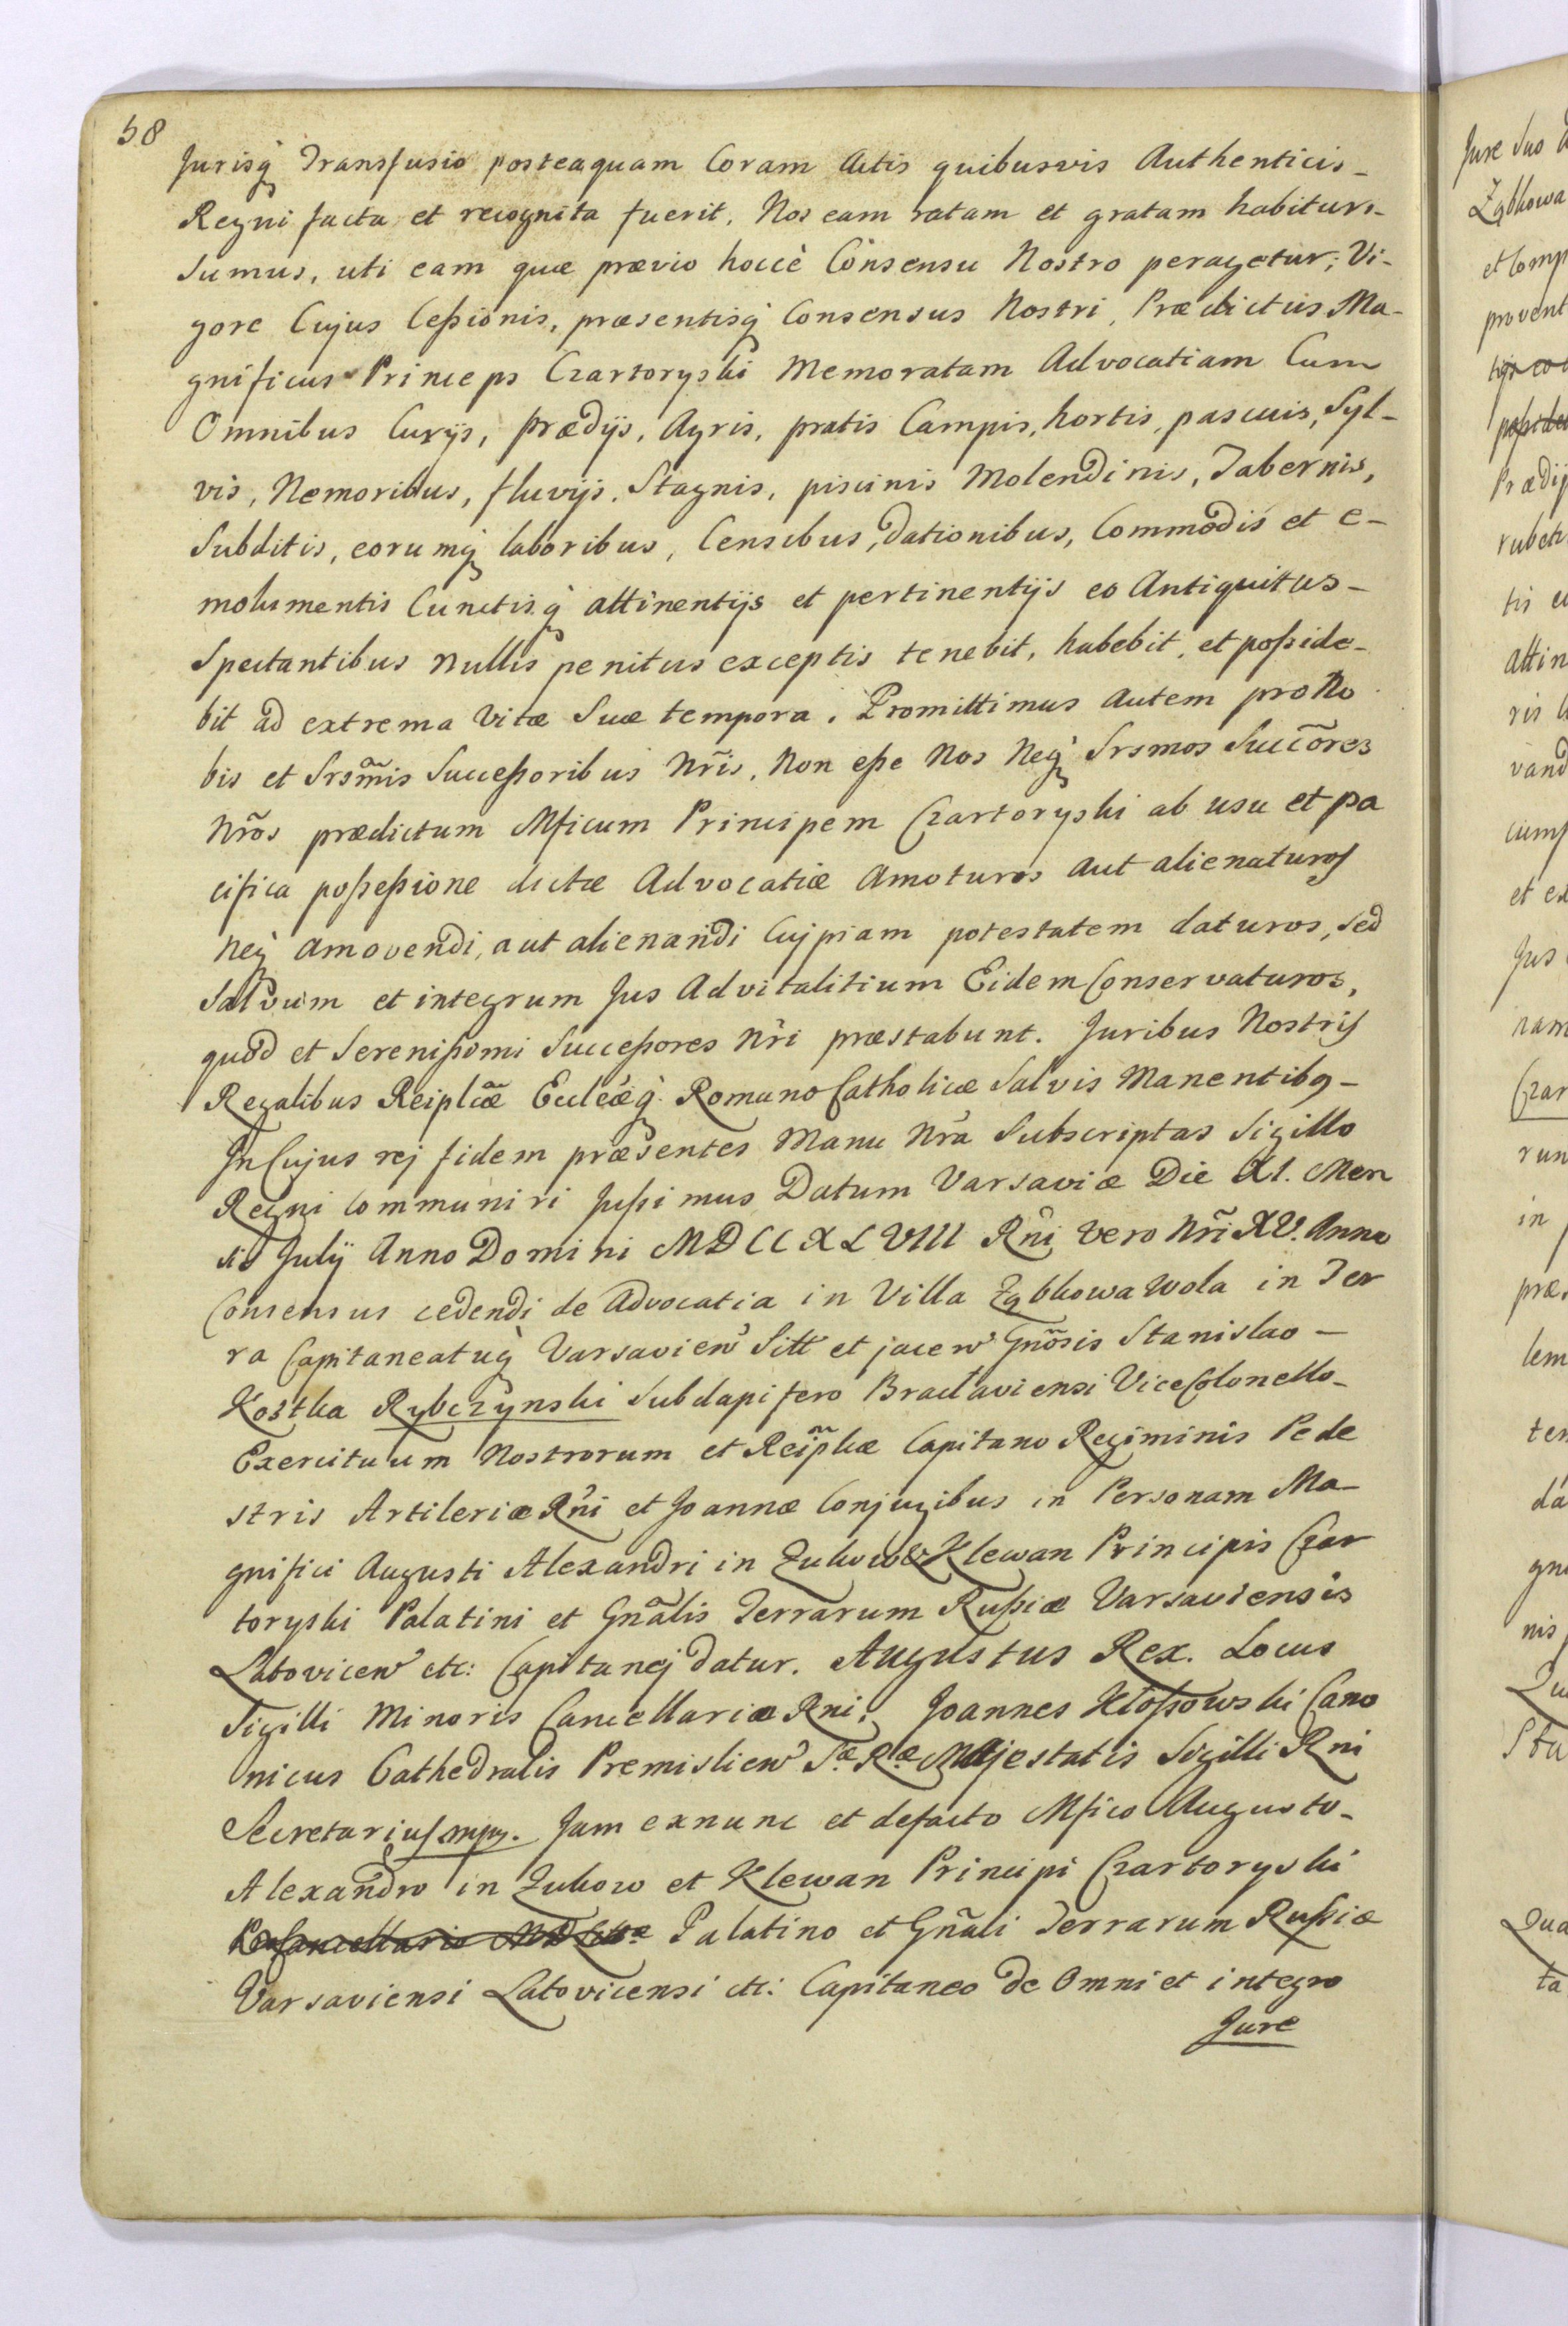 58
Jurisq̃ Transfusio posteaquam Coram Actis quibusvis Authenticis-
Regni facta et recognita fuerit, Nos eam ratam et gratam habituri-
Sumus, uti eam quæ prævio hoccè Consensu Nostro peragetur; Vi-
gore Cujus Ceßionis, præsentisq̃ Consensus Nostri, Prædictus Ma-
gnificus Princeps Czartoryski Memoratam Advocatiam Cum
Omnibus Curijs, prædijs, Agris, pratis Campis, hortis, pascuis, Syl-
vis, Nemoribus, fluvijs, Stagnis, piscinis Molendinis, Tabernis,
Subditis, eorumq̃ laboribus, Censibus, dationibus, Commodis et e-
molumentis Cunctisq̃ attinentijs et pertinentijs eo Antiquitus-
Spectantibus Nullis penitus exceptis tenebit, habebit, et poßide-
bit ad extrema Vitæ Suæ tempora. Promittimus autem pro No
bis et Srsm̃is Succeßoribus Nr̃is, Non eße Nos Neq̃ Srsmos Succ̃ores
Nr̃os prædictum Mficum Principem Czartoryski ab usu et pa
cifica poßeßione dictæ Advocatiæ Amoturos aut alienaturos
Neq̃ amovendi, aut alienandi Cujpiam potestatem daturos, Sed
Salvum et integrum Jus Advitalitium Eidem Conservaturos,
quod et Sereniß̃omi Succeßores Nr̃i præstabunt. Juribus Nostris
Regalibus Reiplcæ̃ Eccleæq̃ Romano Catholicæ Salvis Manentibq -
In Cujus rej fidem præsentes Manu Nr̃a Subscriptas Sigillo
Regni Communiri Jußimus Datum Varsaviæ Die XI. Men
sis Julij Anno Domini MDCCXLVIII Rñi Vero Nr̃i XV. Anno
Consensus cedendi de Advocatia in Villa Ząbkowa Wola in Ter
ra Capitaneatuq̃ Varsavien̄ Sitt et jacen̄ Gnõsis Stanislao -
Kostka Rybczynski Subdapifero Braclaviensi ViceColonello-
Exercituum Nostrorum et Reip̃lcæ Capitano Regiminis Pede
stris Artileriæ Rñi et Joannæ Conjugibus in Personam Ma-
gnifici Augusti Alexandri in Zukow & Klewan Principis Czar
toryski Palatini et Gnãlis Terrarum Rußiæ Varsaviensis
Latovicen̄ etc: Capitanej datur. Augustus Rex. Locus
Sigilli Minoris Cancellariæ Rni. Joannes Kłoßowski Cano
nicus Cathedralis Premislien̄ S.æ R.æ Majestatis Sigilli Rni
Secretarius mpp. Jam exnunc et defacto Mfico Augusto-
Alexandro in Zukow et Klewan Principi Czartoryski
ProCancellario MD Litt.æ Palatino et Gñali Terrarum Rußiæ
Varsaviensi Latovicensi etc: Capitaneo de Omni et integro
Jure
Jure Suo
Ząbkowa
et Comp
provent
Prædij
rubeti
attin
ris
vand
cump
et ex
Jus
nam
Czar
run
in
præ
lem
ten
dá
gni
nis
Sta
Qua
ta